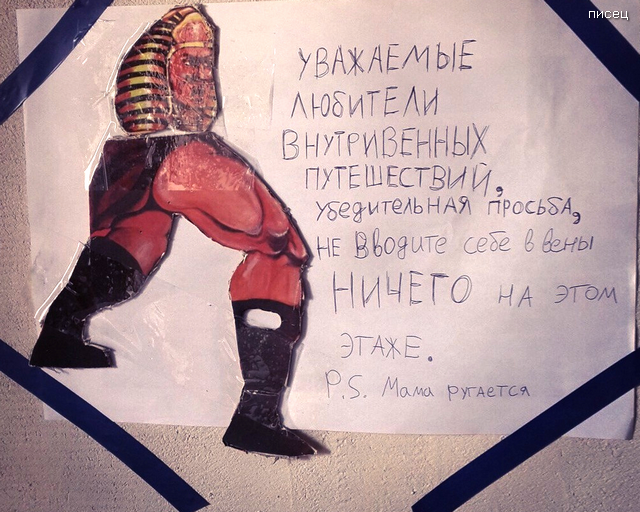 писец
УВАЖАЕМЫЕ
ЛЮБИТЕЛИ
ВНУТРИВЕННЫХ
ПУТЕШЕСТВИЙ,
убедительная просьба,
не вводите себе в вены
НИЧЕГО на этом
ЭТАЖЕ.
P.S. Мама ругается